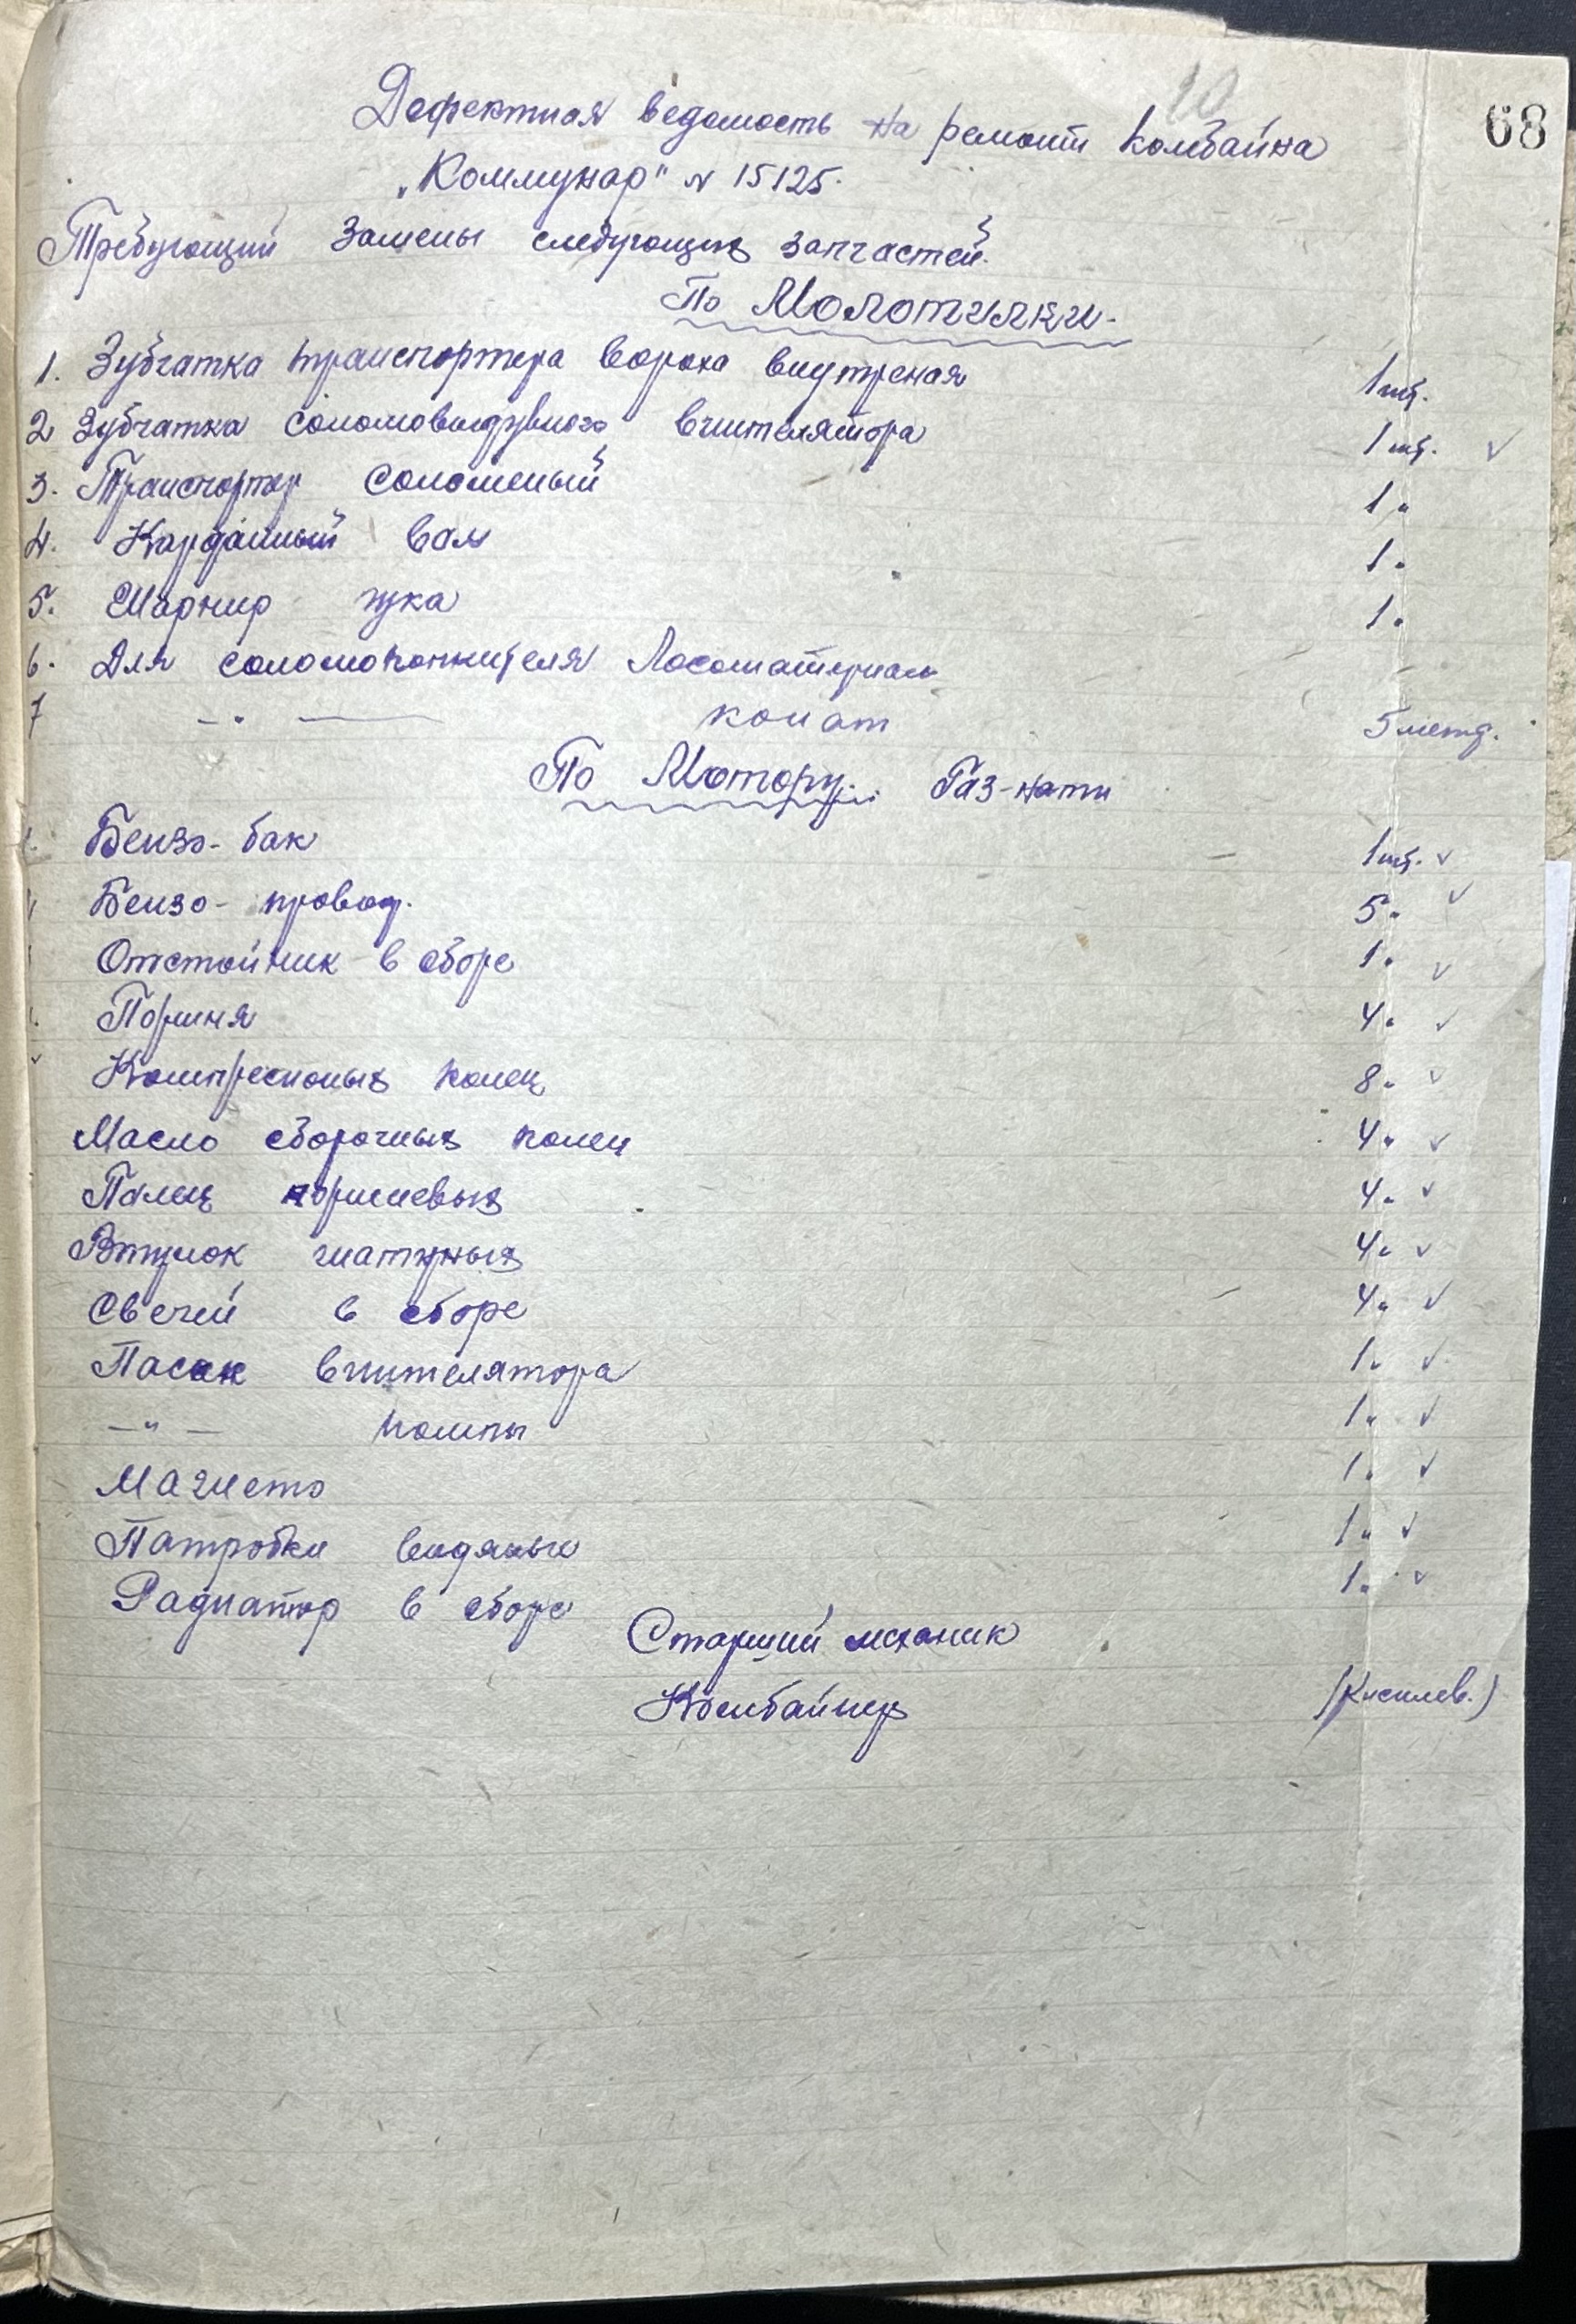 10
68
Дефектная ведомость на ремонт комбайна
„Коммунар" N 15125.
Требующий замены следующих запчастей.
По Молотилки.
1. Зубчатка транспортера вороха внутреная 1 шт.
2 Зубчатка соломовыдувного вентелятора 1 шт. ✓
3. Транспортер соломеный 1 "
4. Карданный вал 1 "
5. Шарнир гука 1 "
6. Для соломокопнителя Лесоматериал
7 —"— канат 5 метр.
По Мотору. Газ-нати
Бензо-бак 1 шт. ✓
Бензо-провод. 5 " ✓
Отстойник в сборе 1 " ✓
Поршня 4 " ✓
Компресионых колец 8 " ✓
Масло сборочных колец 4 " ✓
Палец поршневых 4 " ✓
Втулок шатунных 4 " ✓
Свечей в сборе 4 " ✓
Пасик вентелятора 1 " ✓
—"— помпы 1 " ✓
Магнето 1 " ✓
Патробки водяные 1 " ✓
Радиатор в сборе 1 " ✓
Старший механик
Комбайнер (Киселев.)